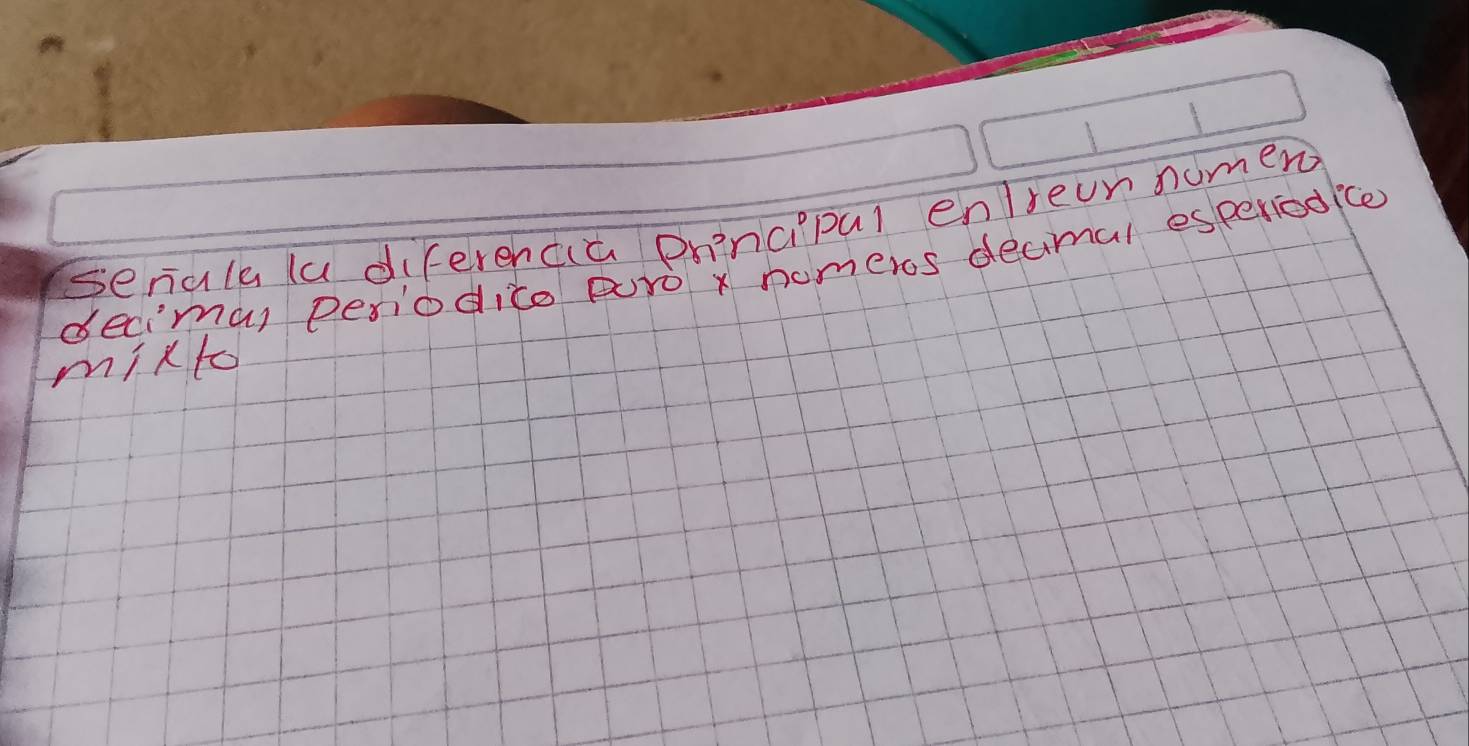 señala la diferencia principal entre un numero
decimal periodico puro y numeros decimal es periodico
mixto